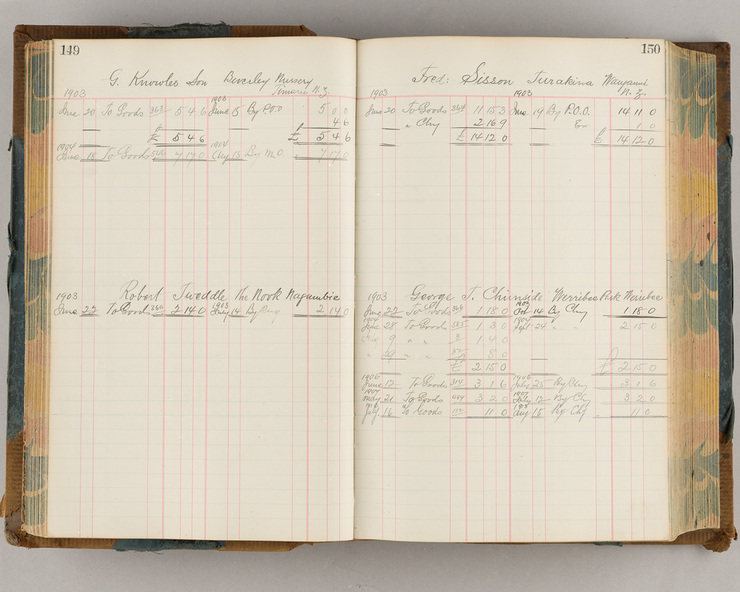 149
G. Knowles Son Beverley Nursery
Timaru N.Z.
1903 1903
June 20 To Goods 363 5 4 6 June 15 By P.O.O 5 0 0
4 6
£ 5 4 6 £ 5 4 6
1904 1904
June 18 To Goods 7 17 0 Aug 13 By M.O. 7 17 0
1903
Robert Tweddle The Nook Nagambie
June 22 To Good 2 14 0 1903 July 14 By 2 14 0
150
Fred: Sisson Turakina Wanganui
N.Z.
1903 1903
June 20 To Goods 364 11 15 3 June 19 By P.O.O. 14 11 0
" Chg 2 16 9 1 0
£ 14 12 0 £ 14 12 0
1903
George T. Chirnside Werribee Park Werribee
June 22 To Goods 1 18 0 Oct 14 By Chq 1 18 0
June 28 To Goods 1 3 0 Sept 24 " 2 15 0
9 " " 1 4 0
" 9 " " 8 0
£ 2 15 0 £ 2 15 0
1906 1906
June 12 To Goods 314 3 1 6 July 25 By Chq 3 1 6
1907 1907
May 21 To Goods 3 2 0 July 12 By Chq 3 2 0
July 16 To Goods 11 0 Aug 15 By Chq 11 0